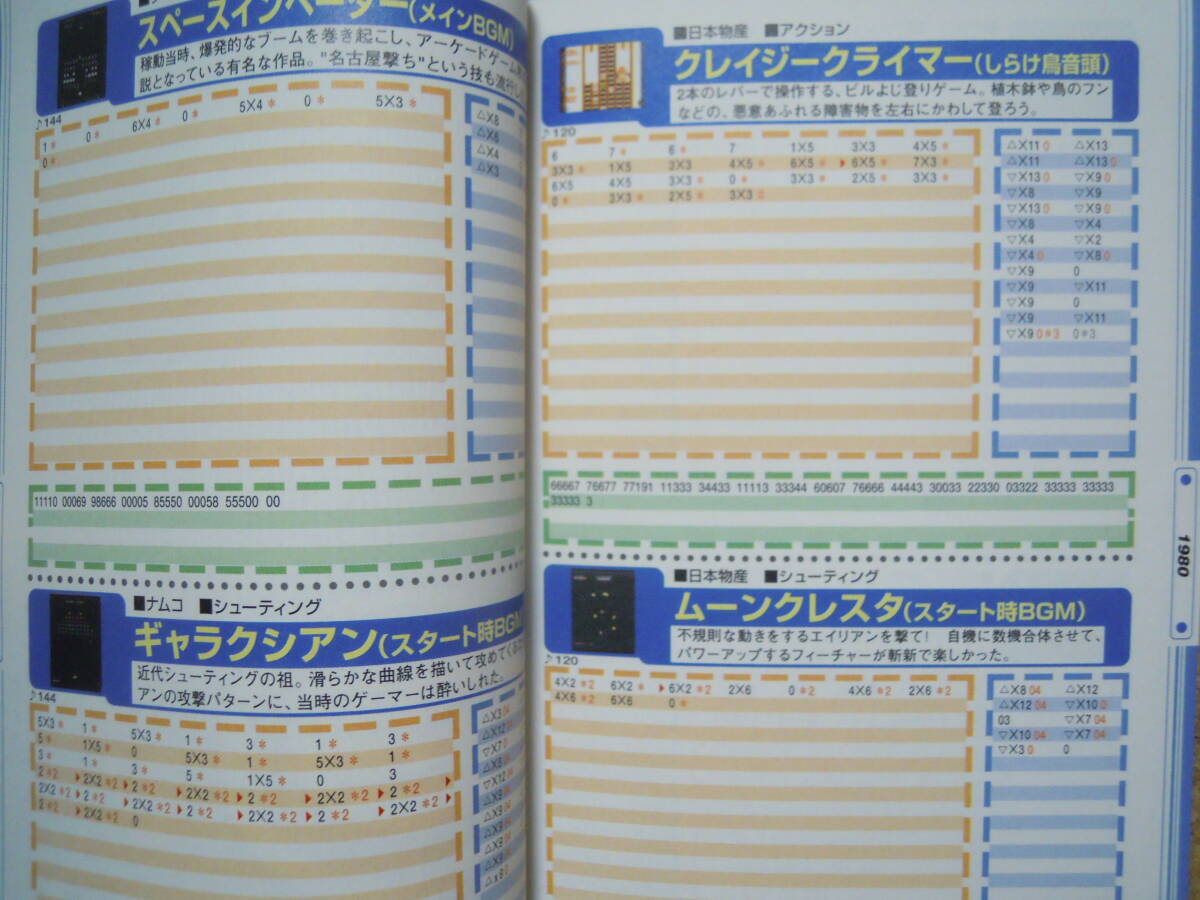 スペースインベーダー(メインBGM)
稼動当時、爆発的なブームを巻き起こし、アーケードゲーム
説となっている有名な作品。"名古屋撃ち"という技も流行し
♪144
1* 0* 6X4* 0* 5X4* 0* 5X3*
0*
△X8
△X6
△X4
△X3
11110 00069 98666 00005 85550 00058 55500 00
■ナムコ ■シューティング
ギャラクシアン(スタート時BGM
近代シューティングの祖。滑らかな曲線を描いて攻めてくる
アンの攻撃パターンに、当時のゲーマーは酔いしれた。
♪144
5X3* 1* 5X3* 1* 3* 1* 3*
5* 1X5* 0 5X3* 1* 5X3* 1*
3* 1* 3* 5* 1X5* 0 3
2*2 ▶2X2*2 ▶2*2 ▶2X2*2 ▶2*2 ▶2X2*2 ▶2*2 ▶
2X2*2 ▶2*2 ▶2X2*2 ▶2*2 ▶2X2*2 ▶2*2 ▶2X2*2 ▶
2*2 ▶2X2*2 0
△X3 04
△X12
▽X7 0
△X8 04
▽X12 04
△X9 04
△X9 04
△X9 04
△X9 04
△X9 04
△x8 0
■日本物産 ■アクション
クレイジークライマー(しらけ鳥音頭)
2本のレバーで操作する、ビルよじ登りゲーム。植木鉢や鳥のフン
などの、悪意あふれる障害物を左右にかわして登ろう。
♪120
6 7* 6* 7 1X5 3X3 4X5*
3X3* 1X5 3X3 4X5* 6X5* ▶6X5* 7X3*
6X5 4X5 3X3* 0* 3X3* 2X5* 3X3*
0* 3X3* 2X5* 3X3
△X11 0 △X13
△X11 △X13 0
▽X13 0 ▽X9 0
▽X8 ▽X9
▽X13 0 ▽X9 0
▽X8 ▽X4
▽X4 ▽X2
▽X4 0 ▽X8 0
▽X9 0
▽X9 ▽X11
▽X9 0
▽X9 ▽X11
▽X9 0*3 0*3
66667 76677 77191 11333 34433 11113 33344 60607 76666 44443 30033 22330 03322 33333 33333
33333 3
1980
■日本物産 ■シューティング
ムーンクレスタ(スタート時BGM)
不規則な動きをするエイリアンを撃て! 自機に数機合体させて、
パワーアップするフィーチャーが斬新で楽しかった。
♪120
4X2*2 6X2* ▶6X2*2 2X6 0*2 4X6*2 2X6*2
4X6*2 6X6 0*
△X8 04 △X12
△X12 04 ▽X10 0
03 ▽X7 04
▽X10 04 ▽X7 04
▽X3 0 0